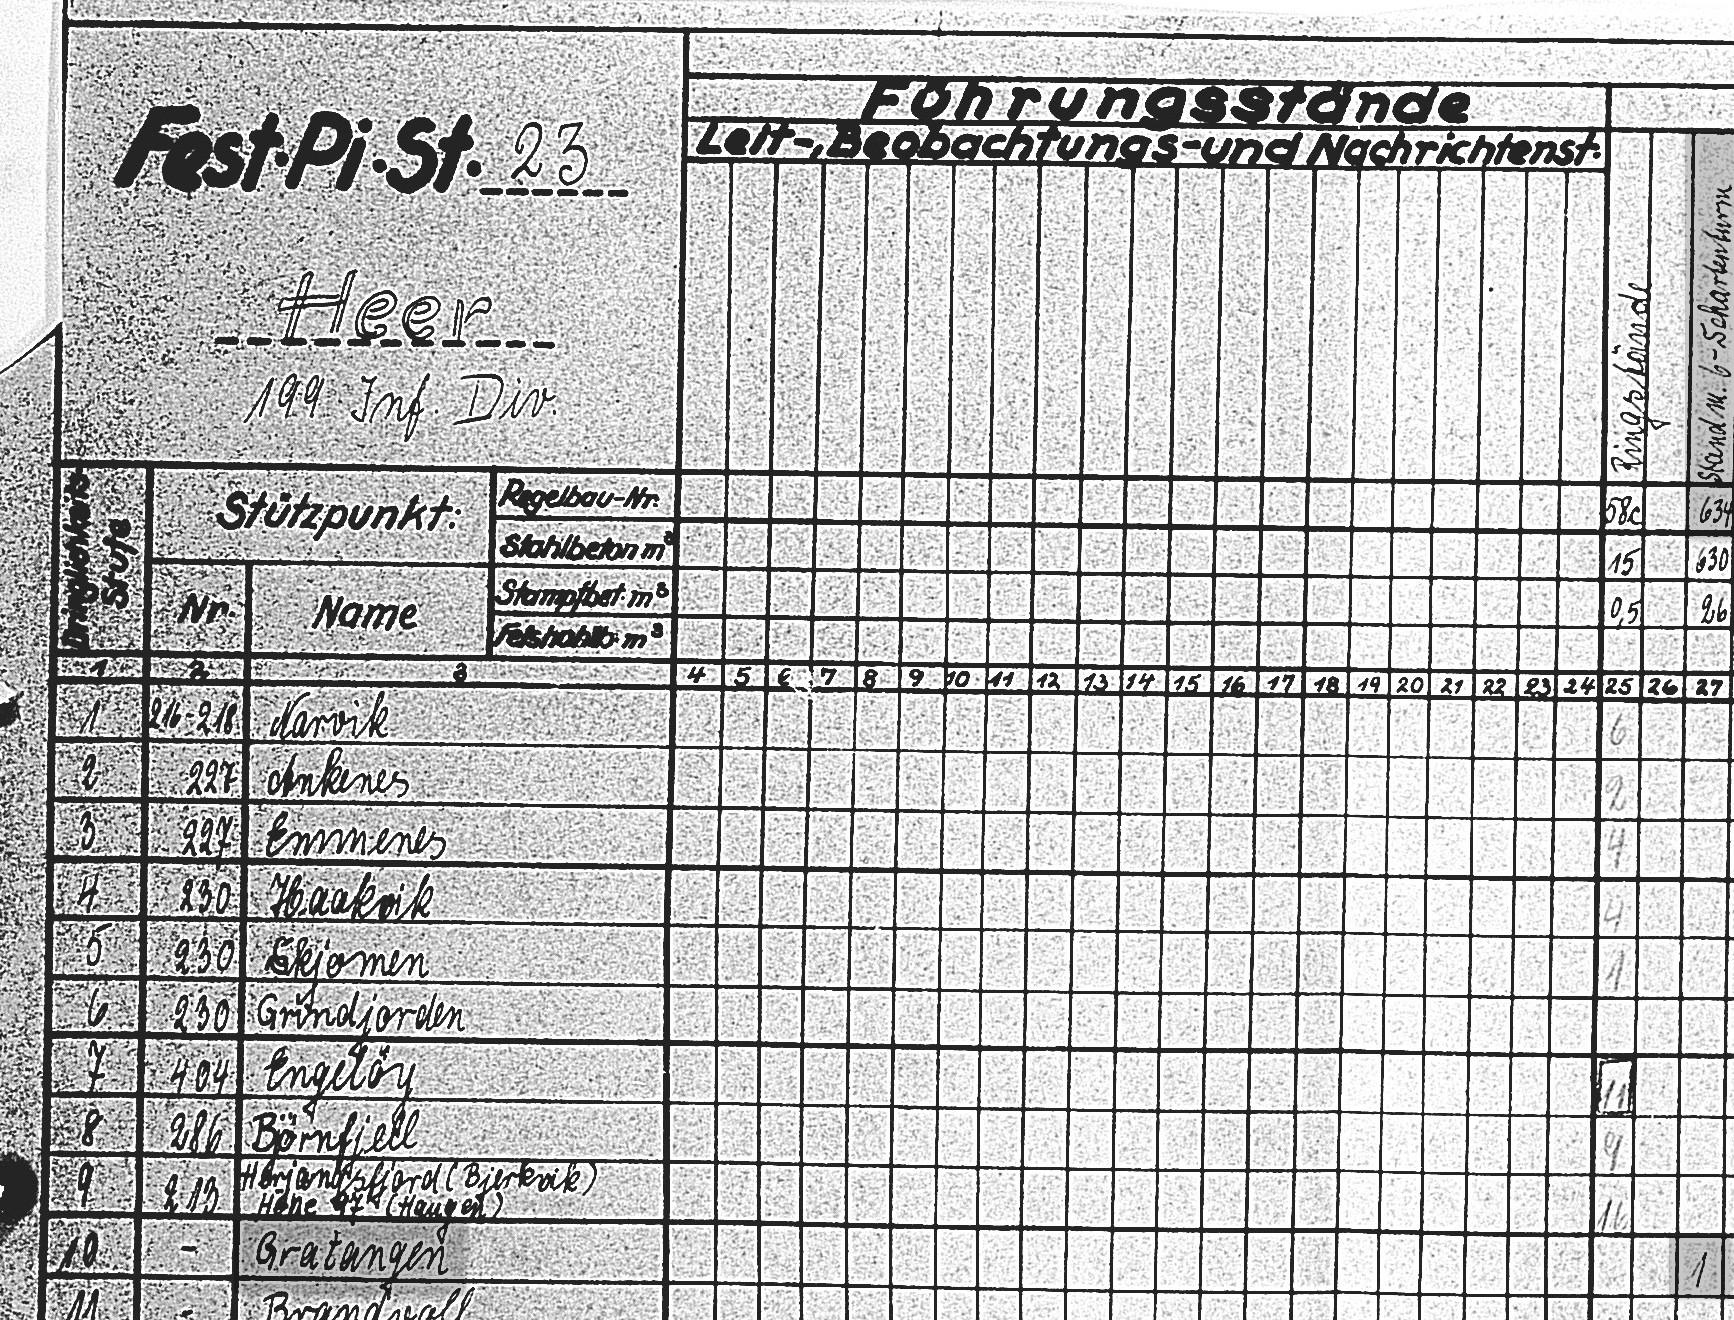 Führungsstände
Leit-, Beobachtungs- und Nachrichtenst.
Fest.Pi.St. 23
Heer
199 Inf. Div.
Ringstände
Stand m. 6-Schartenturm
Dringlichkeits Stufe
Stützpunkt:
Nr.
Name
Regelbau-Nr. 58c 634
Stahlbeton m³ 15 630
Stampfbet. m³ 0,5 26
Felshohlb. m³
1 2 3 4 5 6 7 8 9 10 11 12 13 14 15 16 17 18 19 20 21 22 23 24 25 26 27
1 216-218 Narvik 6
2 227 Ankenes 2
3 227 Emmenes 4
4 230 Haakvik 4
5 230 Skjomen 1
6 230 Grindjorden
7 404 Engelöy 11
8 286 Björnfjell 9
9 213 Herjangsfjord (Bjerkvik)
Höhe 97 (Haugen) 16
10 - Gratangen 1
11 - Brandvoll